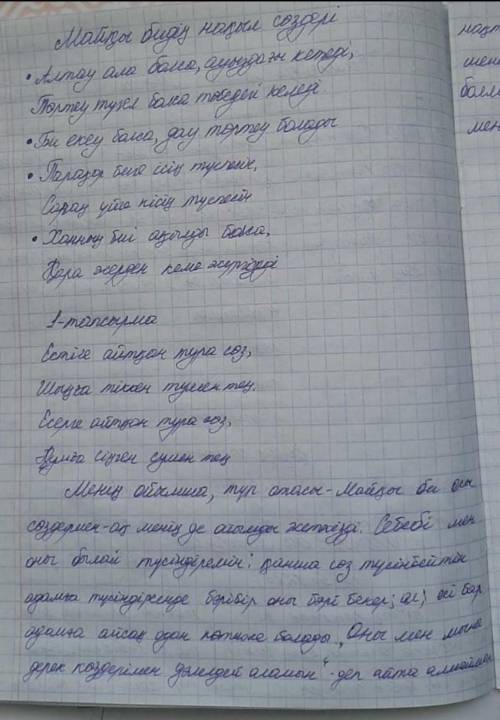 Майқы бидің нақыл сөздері
• Алтау ала болса, ауыздағы кетеді,
Төртеу түгел болса төбедегі келеді
• Би екеу болса, дау төртеу болады
• Парақор биге ісің түспесін,
Сараң үйге түсің түспесін
• Ханның биі ақылды болса,
Қара жерден кеме жүргізеді
1-тапсырма
Естіге айтқан тура сөз,
Шыңға тіккен тумен тең.
Есерге айтқан тура сөз,
Құмға сіңген сумен тең
Менің ойымша, түр атасы - Майқы би осы
сөздермен-ақ менің де ойымды жеткізді. Себебі мен
оны былай түсіндіремін: қанша сөз түсінбейтін
адамға түсіндіргенде бәрібір оны бәрі бекер; ал, есі бар
адамға айтсаң одан нәтиже болады. „Оны мен мына
дерек көздерімен дәлелдей аламын" - деп айта алмаймын
нақт
мен
болм
мен